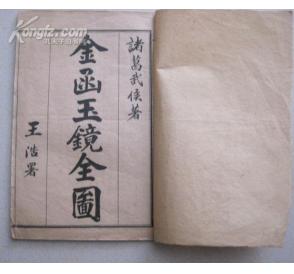 諸葛武侯著
金函玉鏡全圖
王浩署
Kongfz.com
孔夫子旧书网